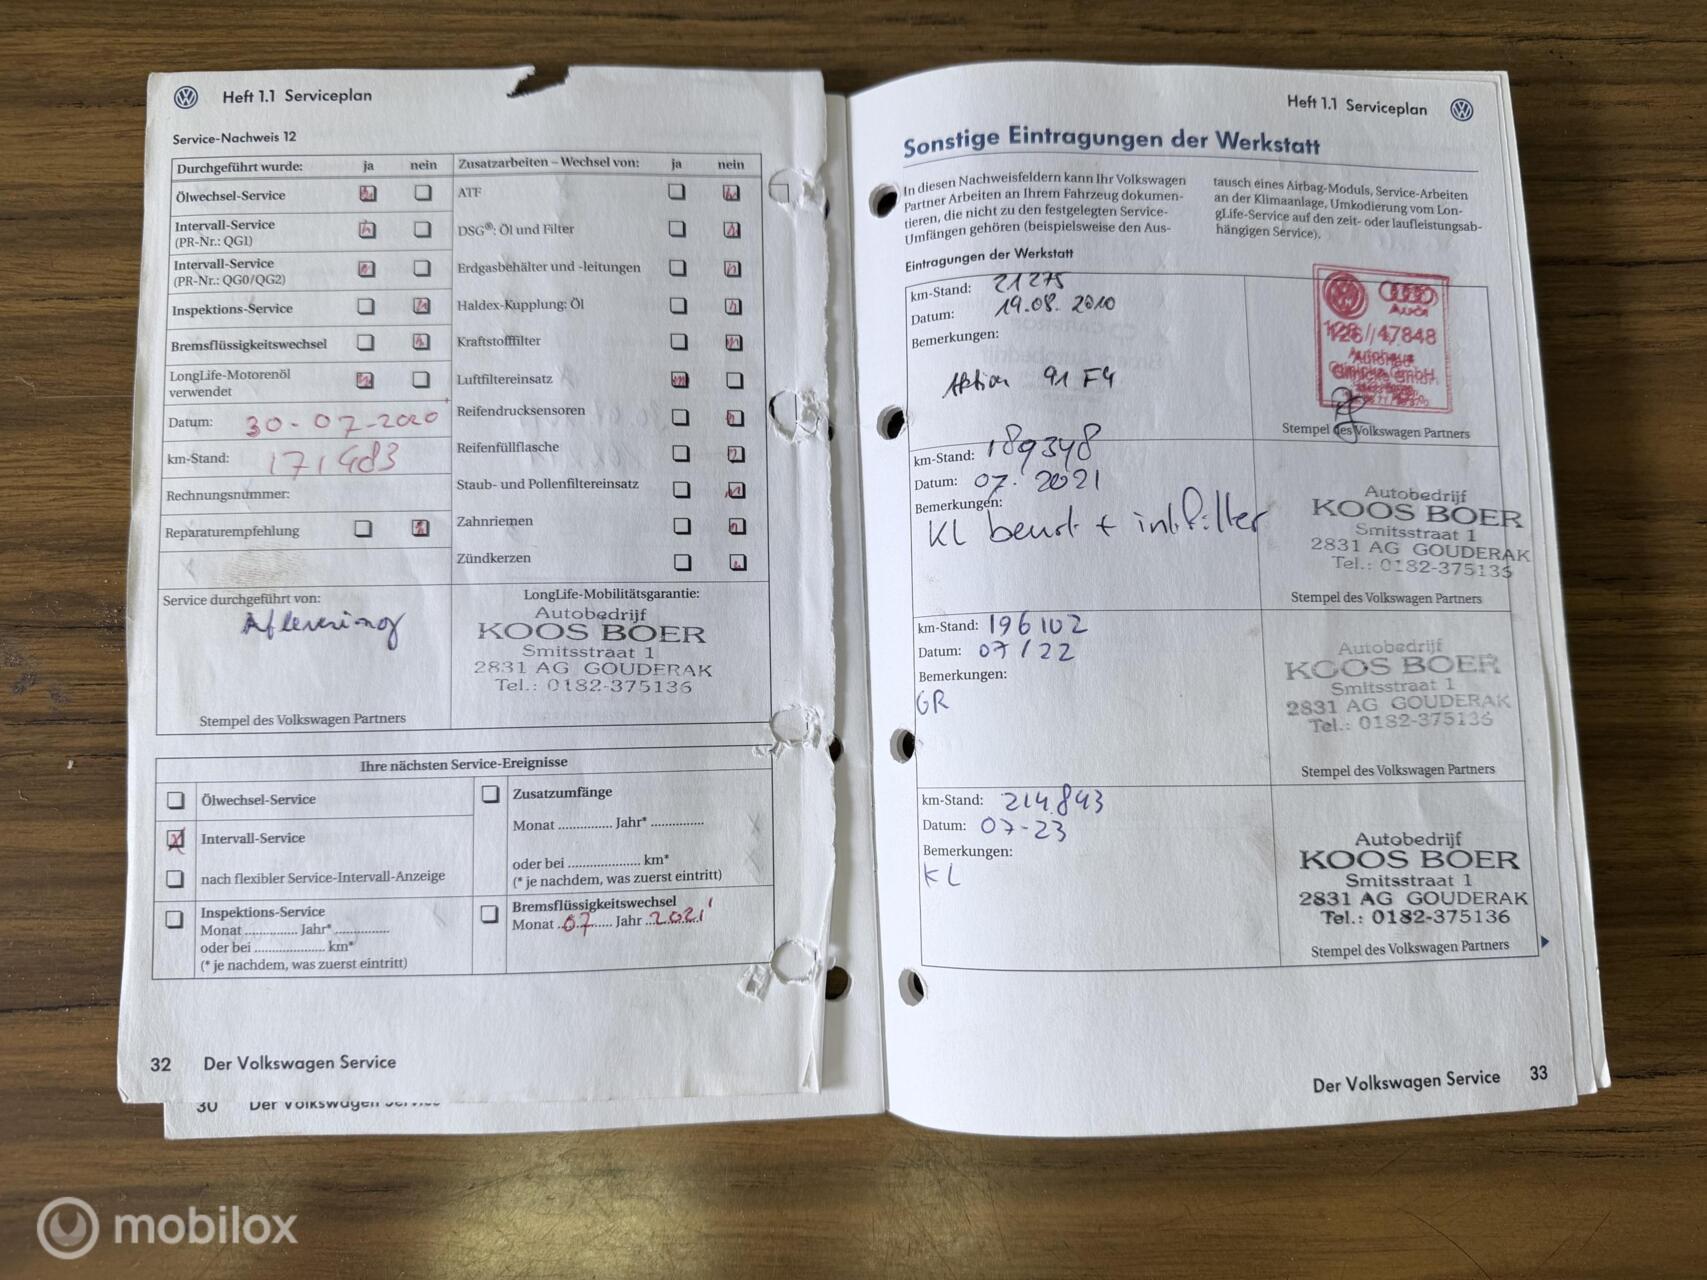 Heft 1.1 Serviceplan
Service-Nachweis 12
Durchgeführt wurde: ja nein
Ölwechsel-Service
Intervall-Service
(PR-Nr.: QG1)
Intervall-Service
(PR-Nr.: QG0/QG2)
Inspektions-Service
Bremsflüssigkeitswechsel
LongLife-Motorenöl
verwendet
Datum: 30-07-2020
km-Stand:
Rechnungsnummer:
Reparaturempfehlung
Zusatzarbeiten – Wechsel von: ja nein
ATF
DSG®: Öl und Filter
Erdgasbehälter und -leitungen
Haldex-Kupplung: Öl
Kraftstofffilter
Luftfiltereinsatz
Reifendrucksensoren
Reifenfüllflasche
Staub- und Pollenfiltereinsatz
Zahnriemen
Zündkerzen
Service durchgeführt von:
Aflevering
Stempel des Volkswagen Partners
LongLife-Mobilitätsgarantie:
Autobedrijf
KOOS BOER
Smitsstraat 1
2831 AG GOUDERAK
Tel.: 0182-375136
Ihre nächsten Service-Ereignisse
Ölwechsel-Service
Intervall-Service
nach flexibler Service-Intervall-Anzeige
Inspektions-Service
Monat ............. Jahr* ..............
oder bei .................. km*
(* je nachdem, was zuerst eintritt)
Zusatzumfänge
Monat .............. Jahr* ..............
oder bei .................. km*
(* je nachdem, was zuerst eintritt)
Bremsflüssigkeitswechsel
Monat ..07..... Jahr ..2021..
32 Der Volkswagen Service
30 Der Volkswagen Service
Heft 1.1 Serviceplan
Sonstige Eintragungen der Werkstatt
In diesen Nachweisfeldern kann Ihr Volkswagen
Partner Arbeiten an Ihrem Fahrzeug dokumen-
tieren, die nicht zu den festgelegten Service-
Umfängen gehören (beispielsweise den Aus-
tausch eines Airbag-Moduls, Service-Arbeiten
an der Klimaanlage, Umkodierung vom Lon-
gLife-Service auf den zeit- oder laufleistungsab-
hängigen Service).
Eintragungen der Werkstatt
km-Stand: 21275
Datum: 19.08.2010
Bemerkungen:
Aktion 91 F4
Audi
126//47848
Autohaus
Stempel des Volkswagen Partners
km-Stand: 189348
Datum: 07.2021
Bemerkungen:
KL beurt +
Autobedrijf
KOOS BOER
Smitsstraat 1
2831 AG GOUDERAK
Tel.: 0182-375136
Stempel des Volkswagen Partners
km-Stand: 196102
Datum: 07/22
Bemerkungen:
GR
Autobedrijf
KOOS BOER
Smitsstraat 1
2831 AG GOUDERAK
Tel.: 0182-375136
Stempel des Volkswagen Partners
km-Stand: 214.843
Datum: 07-23
Bemerkungen:
KL
Autobedrijf
KOOS BOER
Smitsstraat 1
2831 AG GOUDERAK
Tel.: 0182-375136
Stempel des Volkswagen Partners
Der Volkswagen Service 33
mobilox